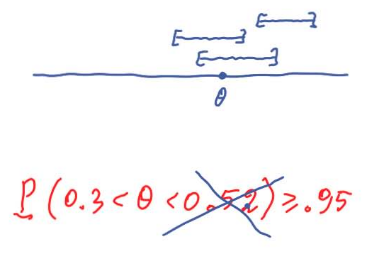 θ
P ( 0.3 < θ < 0.52 ) ≥ .95